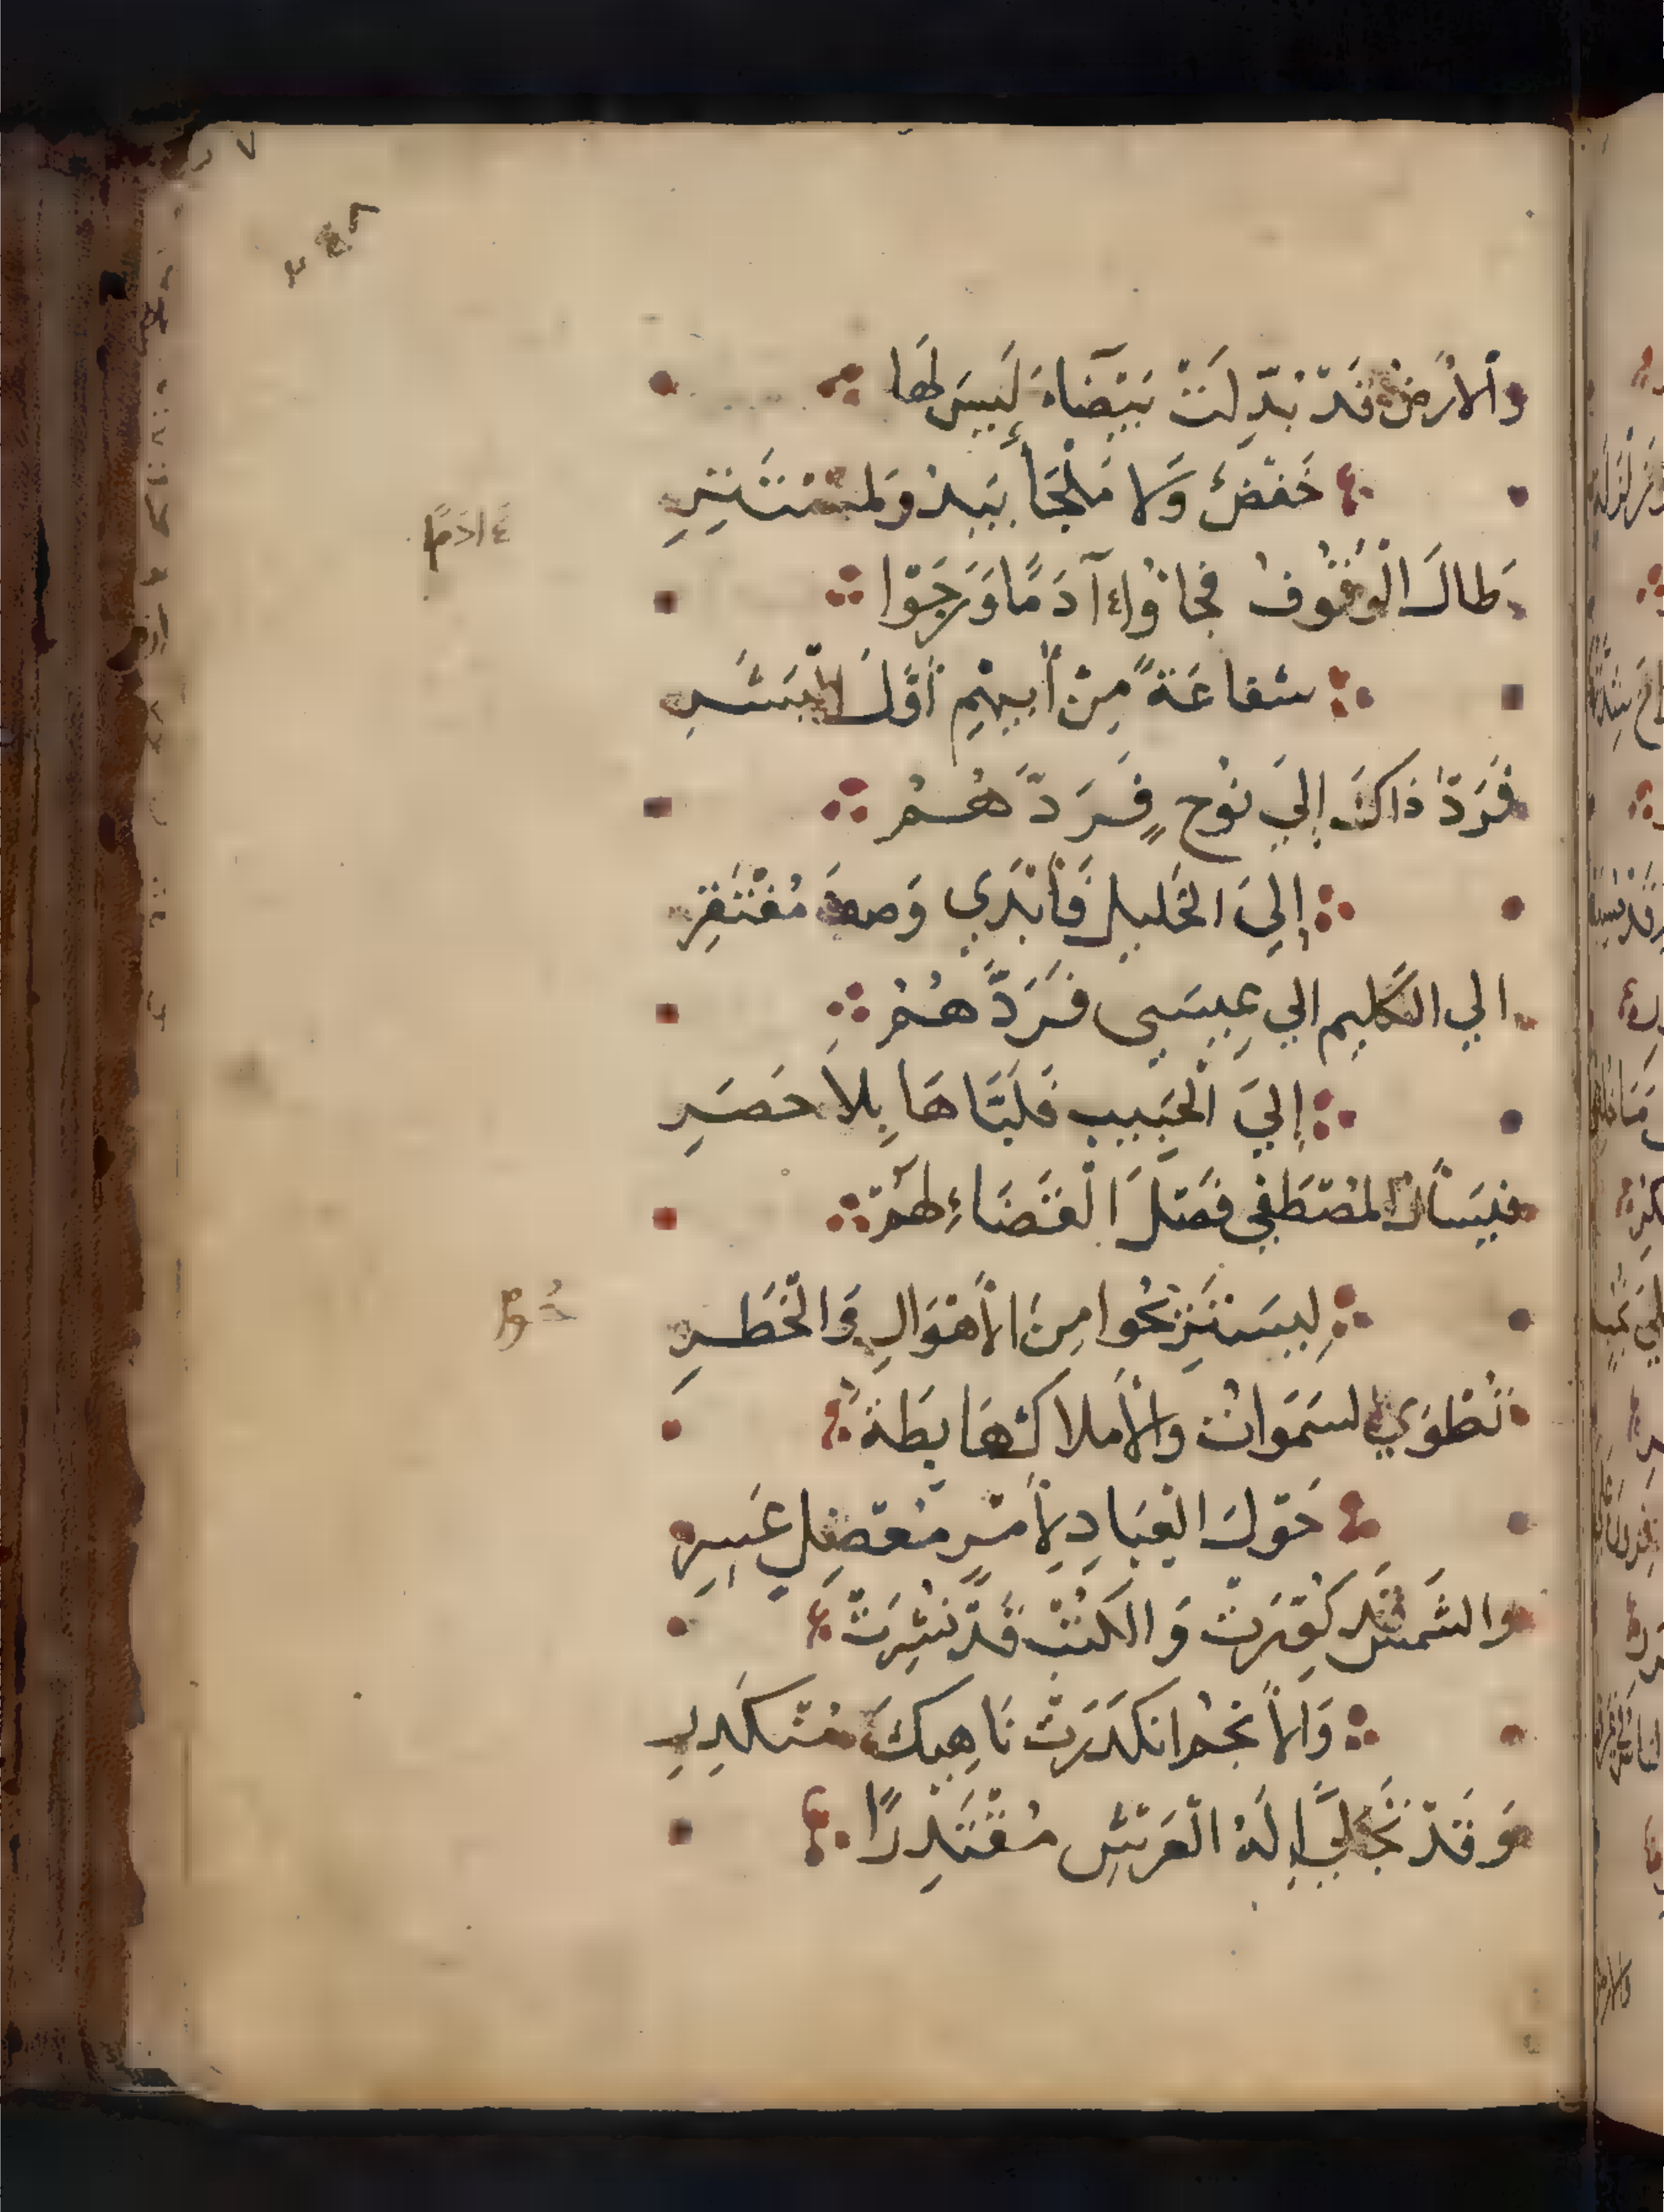 وَالْارْضُ قَدْ بُدِّلَتْ بَيْضَاءَ لَيْسَ لَهَا
خَفْضٌ وَلَا مَلْجَأً يَبْدُو لِمُسْتَتِرِ
طَالَ الْوُقُوفُ فَجَاؤُا آدَمًا وَرَجَوْا
ءَادَمً
شَفَاعَةً مِنْ أَبِيهِمْ أَوَّلَ الْبَشَرِ
فَرَدَّ ذَاكَ إِلَي نُوحٍ فَرَدَّهُمُ
إِلَي الْخَلِيلِ فَأَبْدَي وَصْفَ مُفْتَقِرِ
الي الكَلِيم الي عِيسَى فَرَدَّهُمُ
إِلَي الْحَبِيبِ فَلَبَّاهَا بِلَا حَصَرِ
فَيَسْأَلُ الْمُصْطَفَي فَصْلَ الْقَضَاءِ لَهُمْ
لِيَسْتَرِيحُوا مِنَ الْأَهْوَالِ وَالْخَطَرِ
تُطْوَي السَمَوَاتُ وَالْأَمْلَاكُ هَابِطَةٌ
حَوْلَ الْعِبَادِ لِأَمْرٍ مُعْضِلٍ عَسِرِ
وَالشَّمْسُ قَدْ كُوِّرَتْ وَالكُتْبُ قَدْ نُشِرَتْ
وَالْأَنْجُمُ انْكَدَرَتْ نَاهِيكَ مِنْ كَدَرِ
وَقَدْ تَجَلَّي إِلَهُ الْعَرْشِ مُقْتَدِرًا